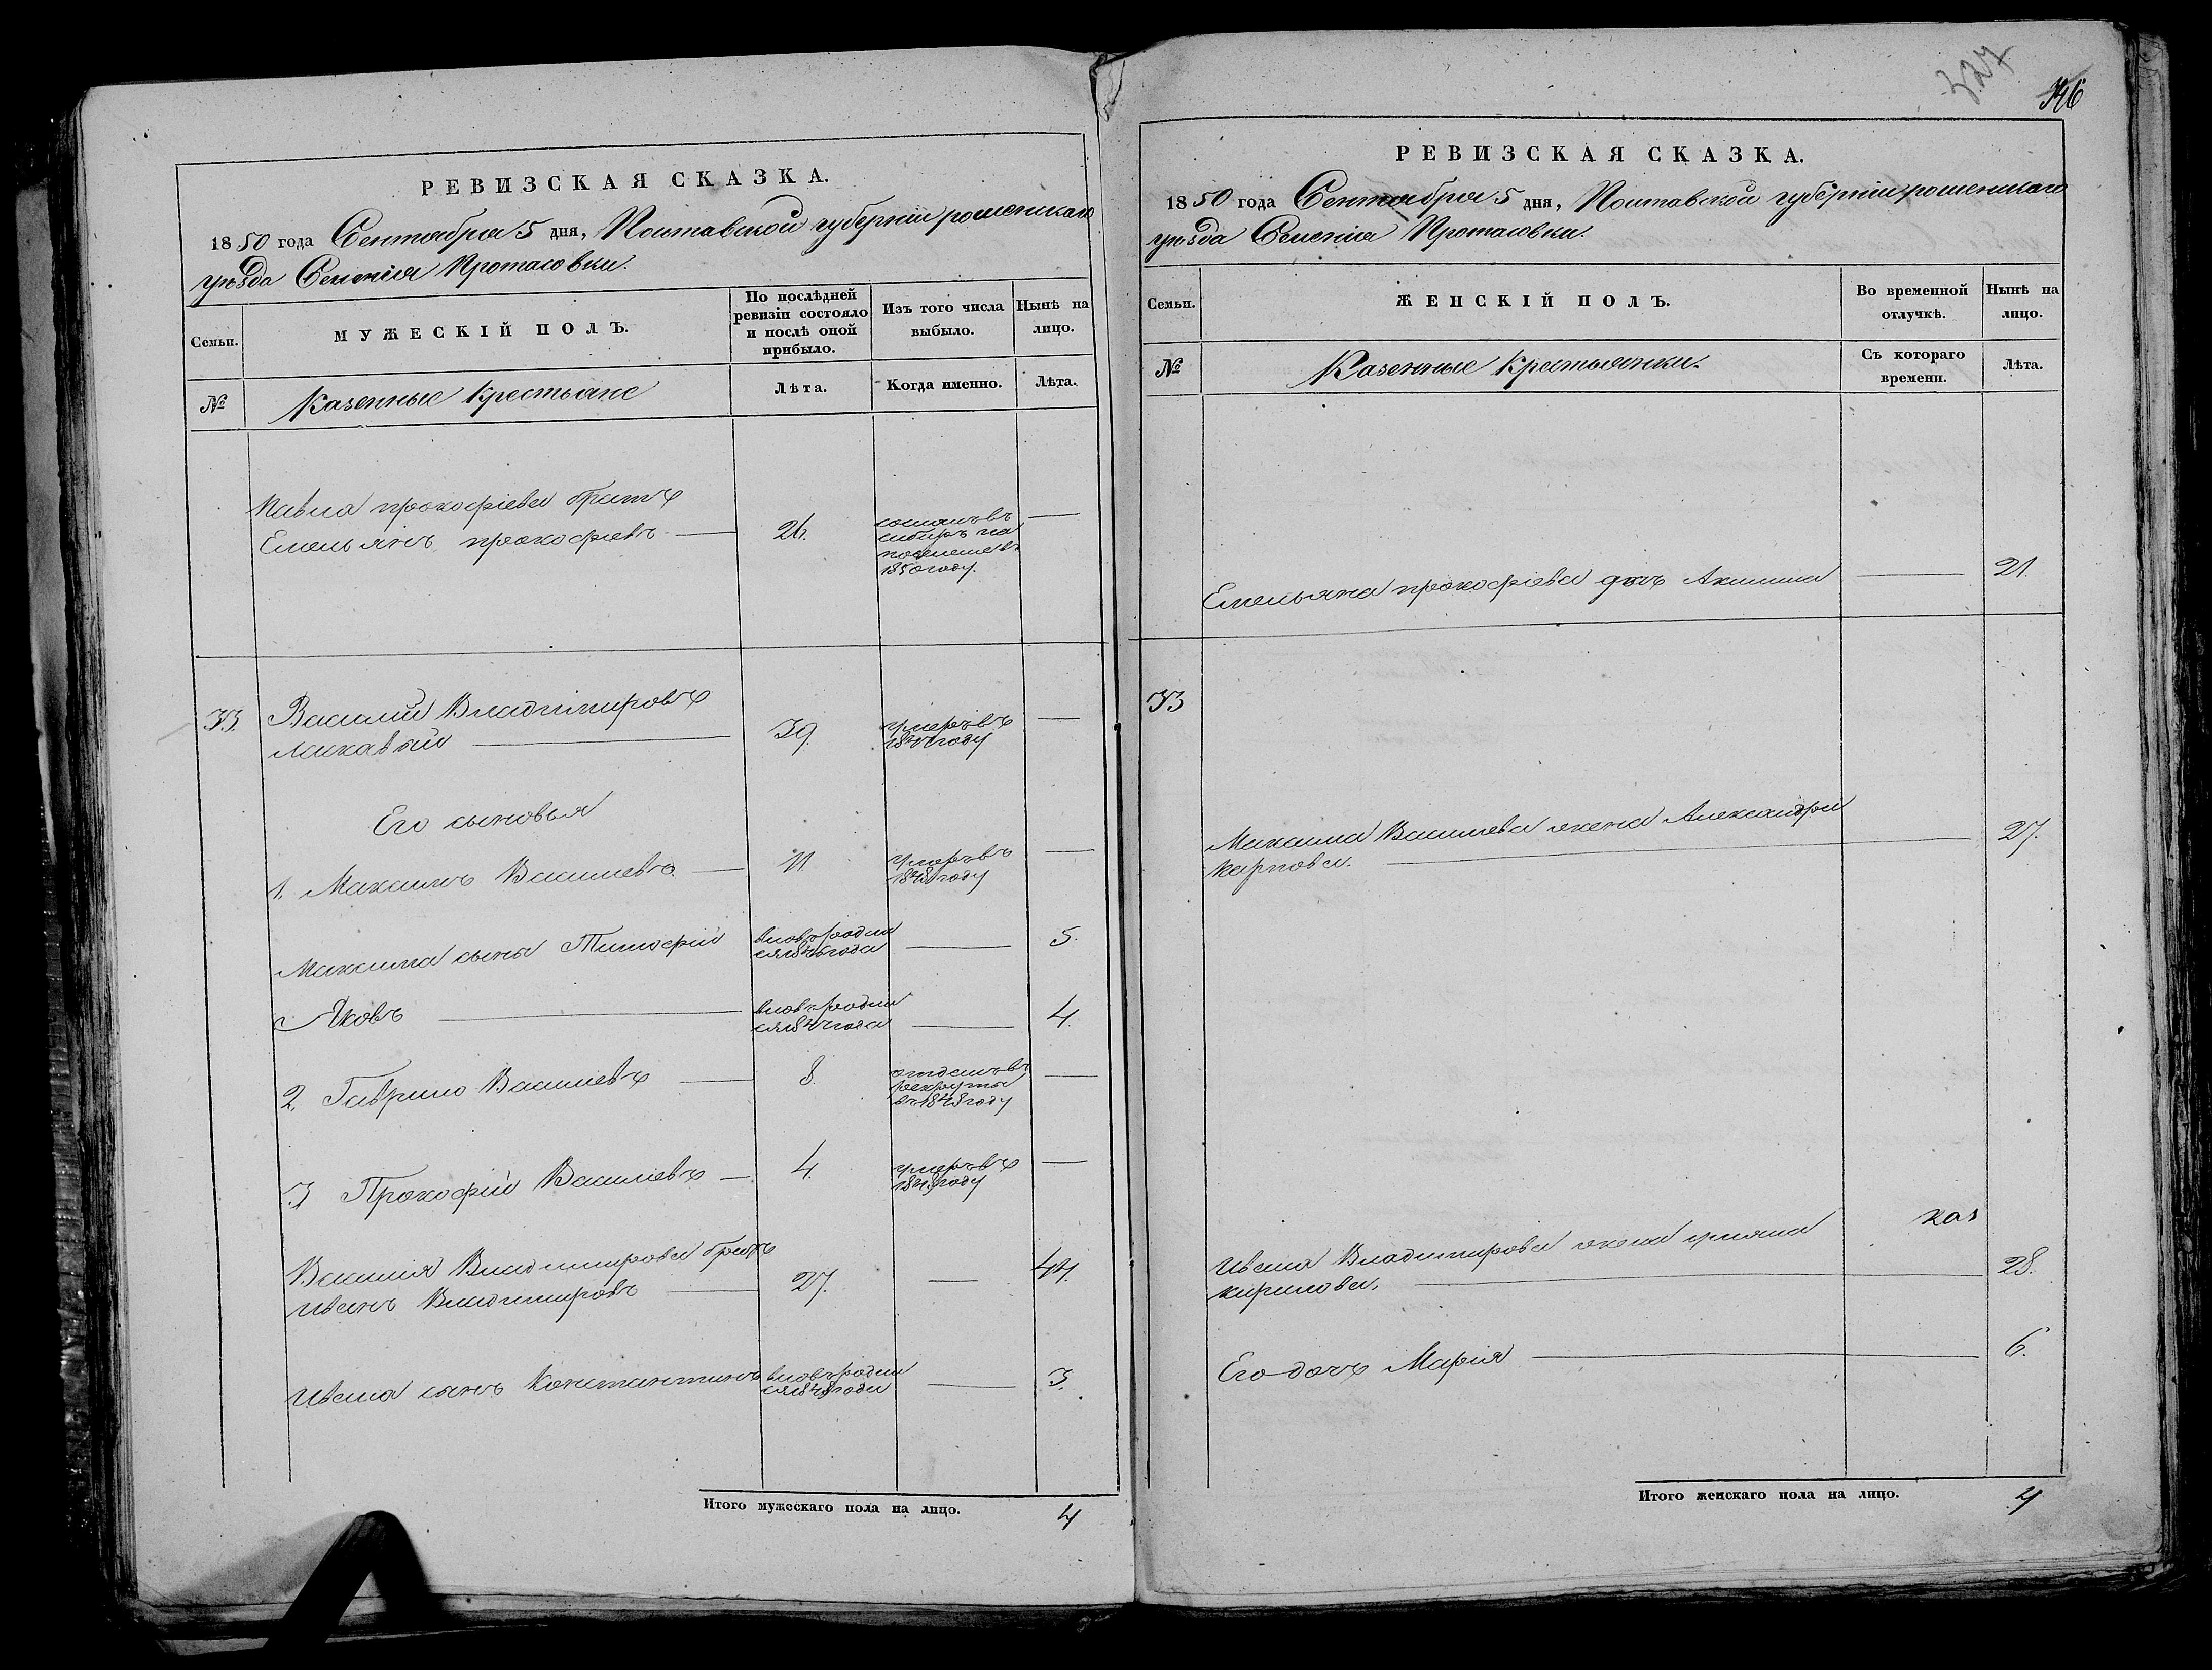 РЕВИЗСКАЯ СКАЗКА.
1850 года Сентября 5 дня, Полтавской губерніи роменскаго
уѣзда Селенія Протасовки.
Семьи.
МУЖЕСКІЙ ПОЛЪ.
По послѣдней
ревизіи состояло
и послѣ оной
прибыло.
Изъ того числа
выбыло.
Нынѣ на
лицо.
№
Казенные Крестьяне
Лѣта.
Когда именно.
Лѣта.
Павла прокофіева братъ
Емельянъ прокофіевъ — 26. —
сосланъ въ
сибирь на
поселеніе въ
1850 году.
33. Василій Владиміровъ
Лукавый — 39. —
умеръ въ
году
Его сыновья
1. Максимъ Василіевъ — 11 —
умеръ въ
1848 году
Максима сыны Тимофій — 5.
вновь родил
ся 1846 года
Яковъ — 4.
вновь родил
ся года
2. Гаврило Василіевъ — 8. —
отданъ въ
рекруты
въ 1848 году
3 Прокофій Василіевъ — 4. —
умеръ въ
году
Василія Владимірова братъ
Иванъ Владиміровъ — 27. — 44.
Ивана сынъ Константинъ — 3.
вновь родил
ся 1848 года
Итого мужескаго пола на лицо. 4
327
346
РЕВИЗСКАЯ СКАЗКА.
1850 года Сентября 5 дня, Полтавской губерніи роменскаго
уѣзда Селенія Протасовки.
Семьи.
ЖЕНСКІЙ ПОЛЪ.
Во временной
отлучкѣ.
Нынѣ на
лицо.
№
Казенные Крестьянки.
Съ котораго
времени.
Лѣта.
Емельяна прокофіева дочь Акилина — 21.
33
Максима Василіева жена Александра
Карпова. — 27.
Ивана Владимірова жена уліяна
кирилова. — 28.
Его дочь Марія — 6.
Итого женскаго пола на лицо. 4